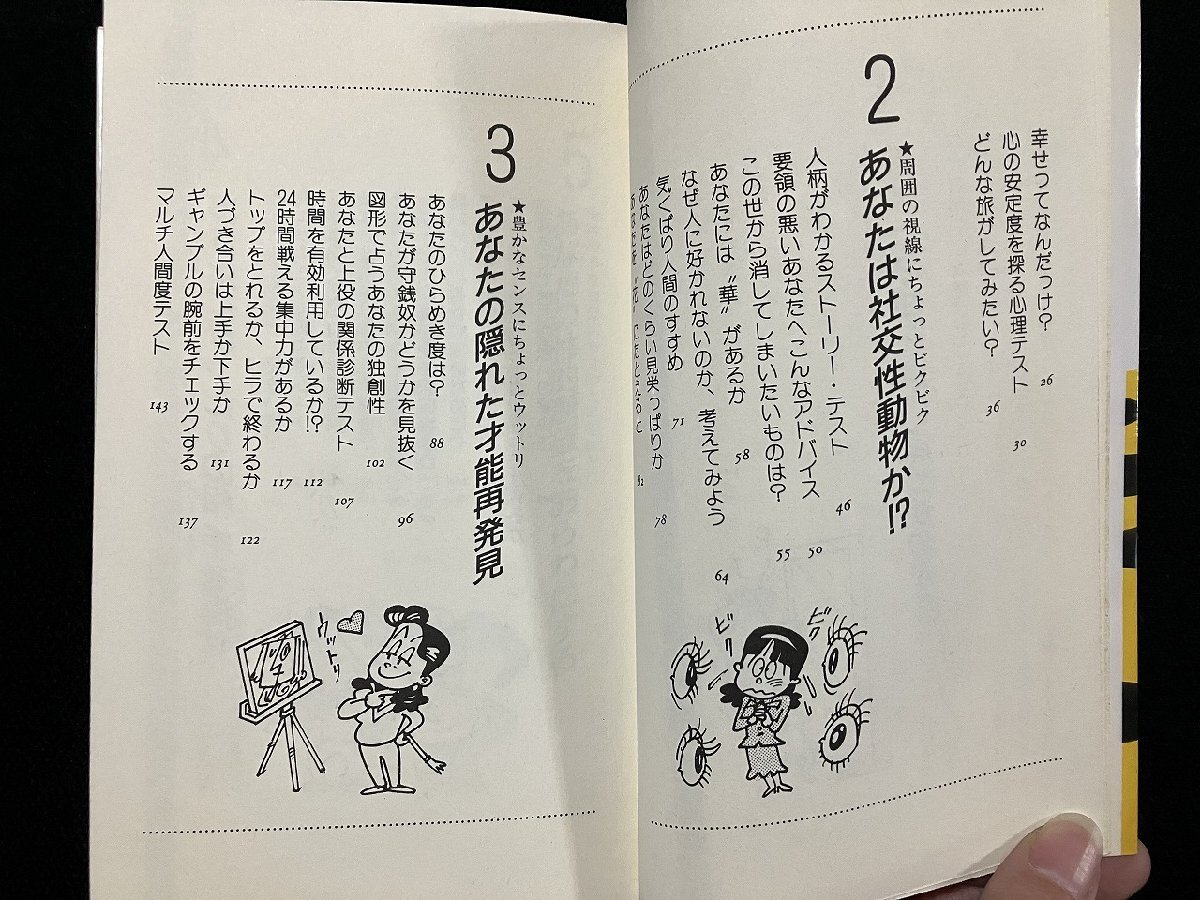 幸せってなんだっけ? 26
心の安定度を探る心理テスト 30
どんな旅がしてみたい? 36
2
★周囲の視線にちょっとビクビク
あなたは社交性動物か!?
人柄がわかるストーリー・テスト 46
要領の悪いあなたへこんなアドバイス 50
この世から消してしまいたいものは? 55
あなたには〝華〟があるか 58
なぜ人に好かれないのか、考えてみよう 64
気くばり人間のすすめ 71
あなたはどのくらい見栄っぱりか 78
82
ビクッ
ビクッ
3
★豊かなセンスにちょっとウットリ
あなたの隠れた才能再発見
あなたのひらめき度は? 88
あなたが守銭奴かどうかを見抜く 96
図形で占うあなたの独創性 102
あなたと上役の関係診断テスト 107
時間を有効利用しているか!? 112
24時間戦える集中力があるか 117
トップをとれるか、ヒラで終わるか 122
人づき合いは上手か下手か 131
ギャンブルの腕前をチェックする 137
マルチ人間度テスト 143
ウットリ